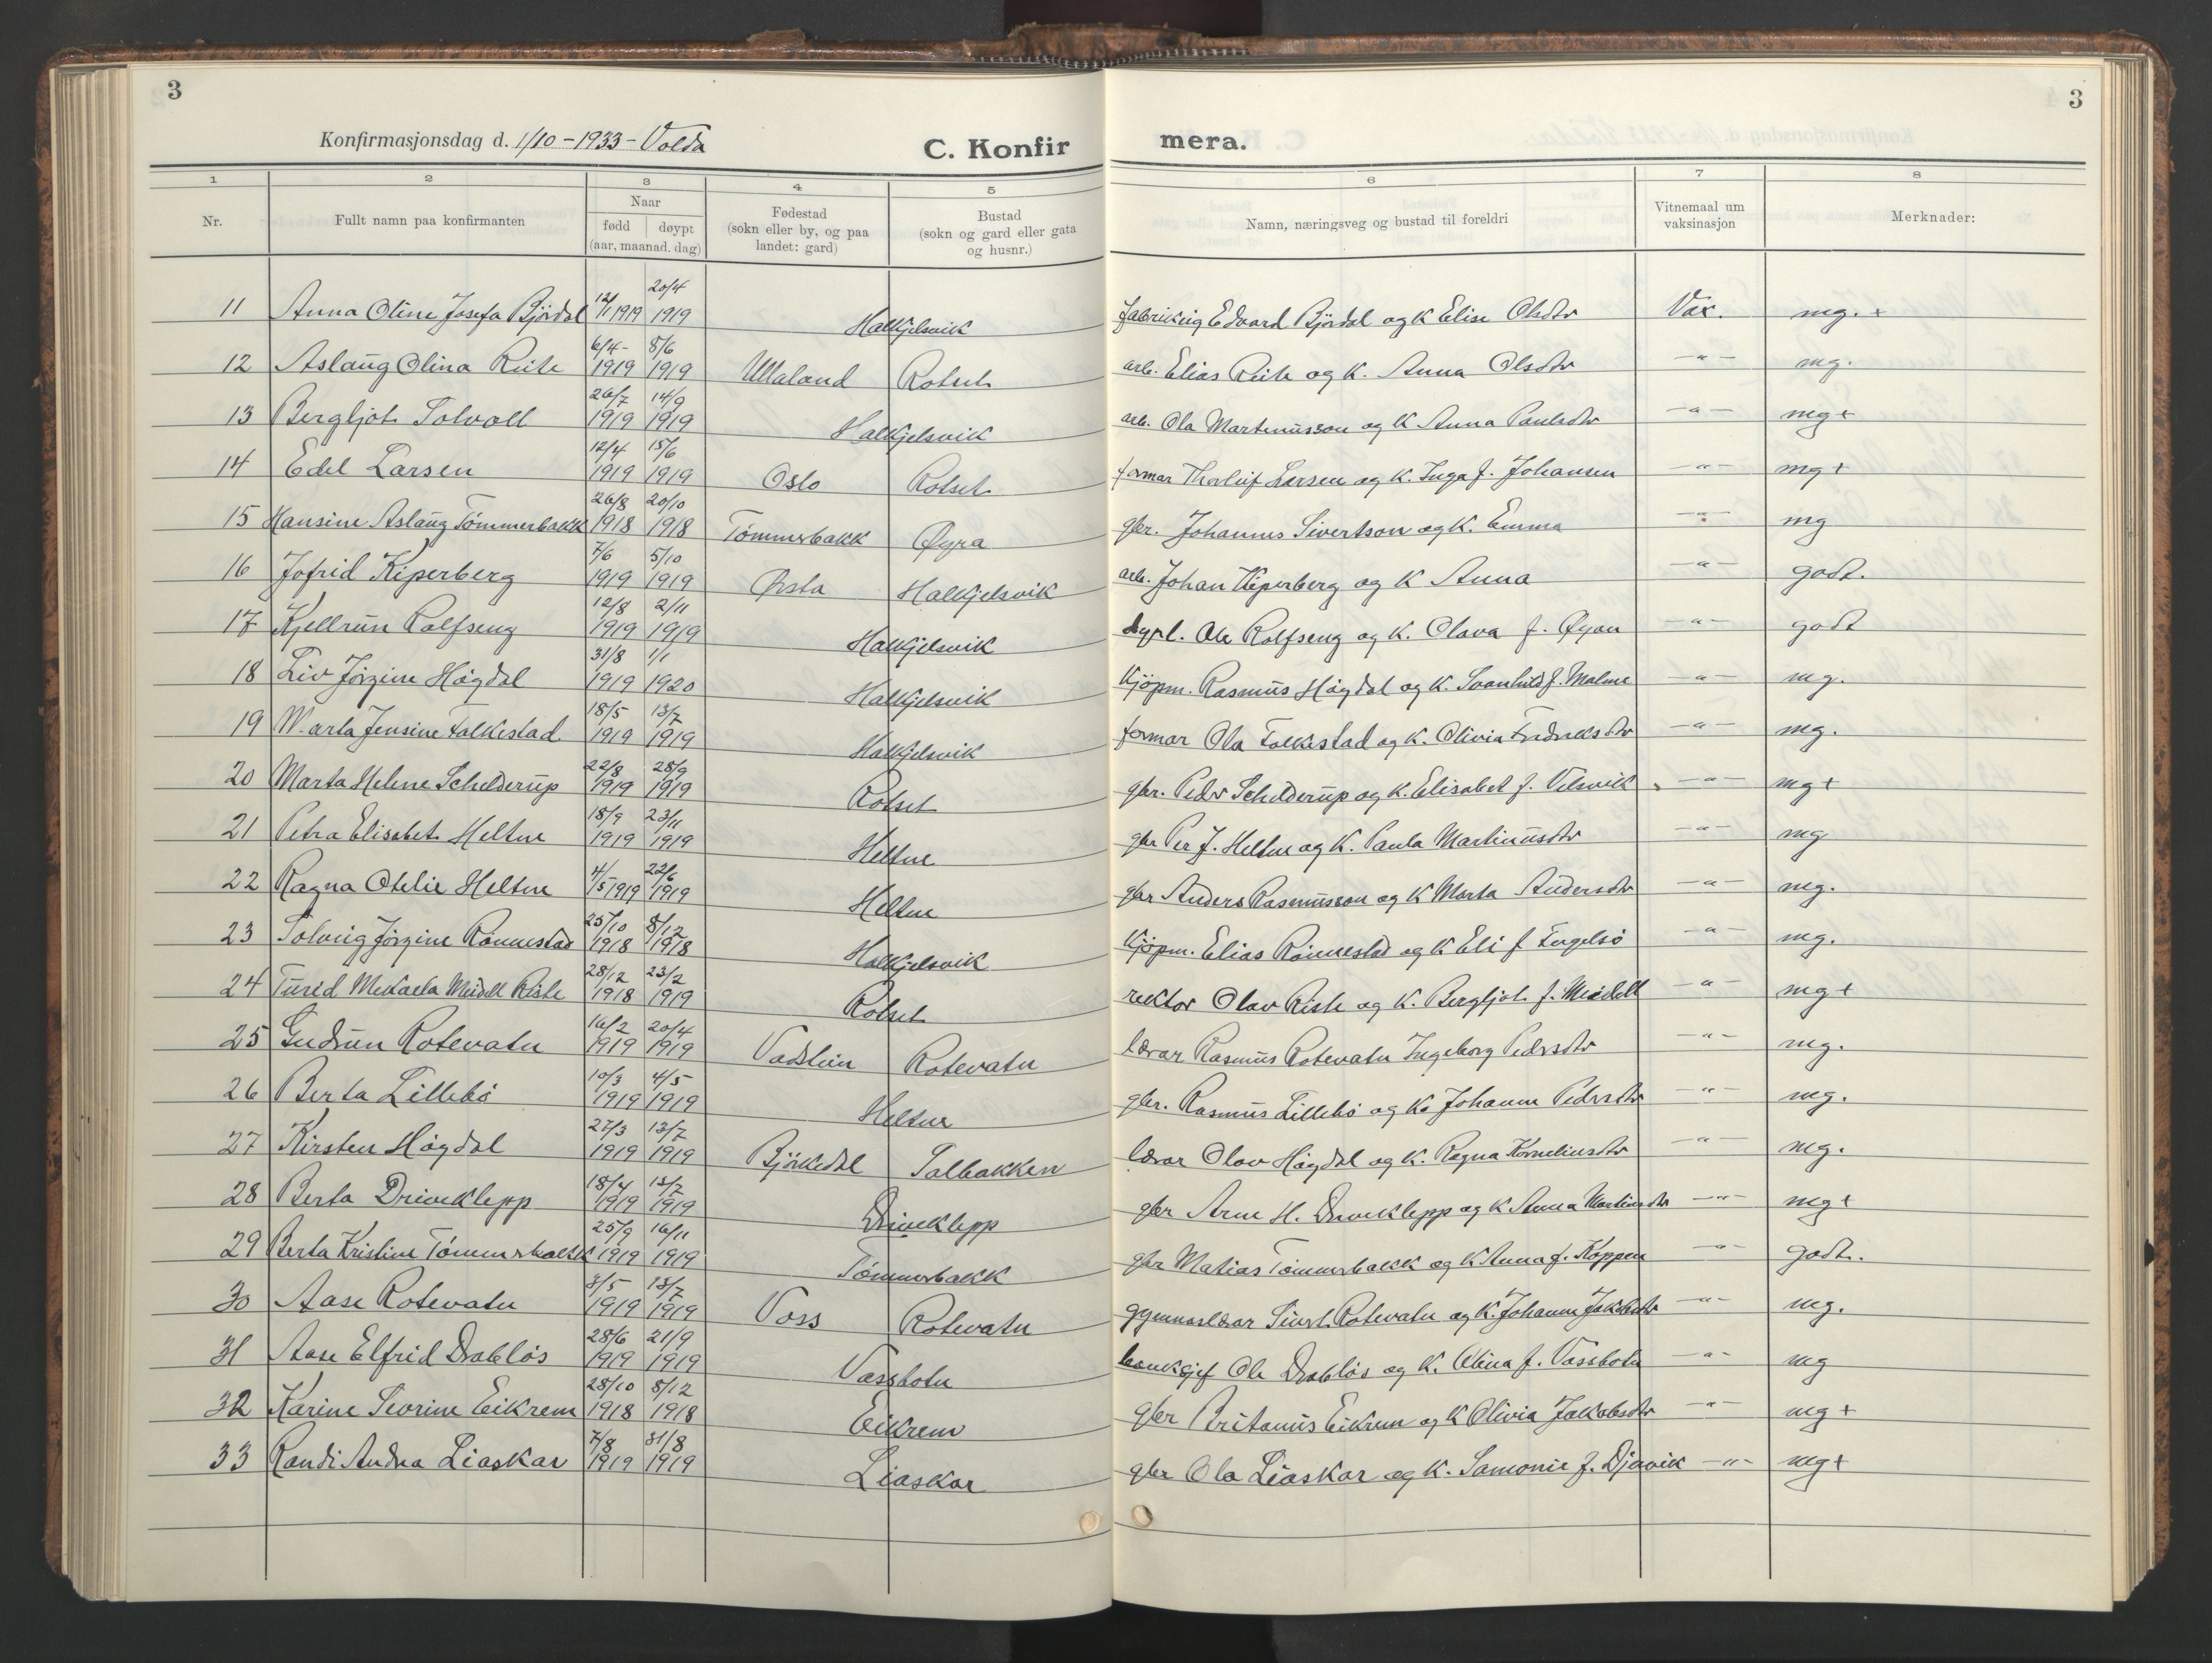 3
3
Konfirmasjonsdag d. 1/10-1933-Volda
C. Konfirmera.
1 2 3 4 5 6 7 8
Nr. Fullt namn paa konfirmanten Naar fødd døypt (aar, maanad. dag) Fødestad (sokn eller by, og paa landet: gard) Bustad (sokn og gard eller gata og husnr.) Namn, næringsveg og bustad til foreldri Vitnemaal um vaksinasjon Merknader:
11 Anna Oline Josefa Bjørdal 12/1 1919 20/4 1919 Halkjelsvik fabrikeig Edvard Bjørdal og K Elise Olsdtr Vax. mg. +
12 Aslaug Olina Reite 6/4- 1919 8/6 1919 Ulaland Rotset arb. Elias Reite og K. Anna Olsdtr -"- mg.
13 Bergljot Solvoll 26/7 1919 14/9 1919 Halkjelsvik arb. Ola Martinusson og K Anna Paulsdtr -"- mg+
14 Edel Larsen 12/4 1919 15/6 1919 Oslo Rotset formar Thorleif Larsen og K. Inga f. Johansen -"- mg+
15 Hansine Aslaug Tømmerbakk 26/8 1918 20/10 1918 Tømmerbakk Øyra gbr. Johannes Sivertson og K. Emma -"- mg
16 Jofrid Kiperberg 7/6 1919 5/10 1919 Ørsta Halkjelsvik arb. Johan Kiperberg og K Anna -"- godt.
17 Kjellrun Rolfseng 12/8 1919 2/11 1919 Halkjelsvik dyrl. Ole Rolfseng og K. Olava f. Øyan -"- godt
18 Liv Jørgine Høgdal 31/8 1919 1/1 1920 Halkjelsvik Kjøpm. Rasmus Høgdal og K. Svanhild f. Malme -"- mg.
19 Marta Jensine Folkestad 18/5 1919 13/7 1919 Halkjelsvik formar Ola Folkestad og K. Olivia Fredriksdtr -"- mg.
20 Marta Helene Schelderup 22/8 1919 28/9 1919 Rotset gbr. Peder Schelderup og K. Elisabet f. Velsvik -"- mg+
21 Petra Elisabet Heltne 18/9 1919 23/11 1919 Heltne gbr Per J. Heltne og K. Paula Martinusdtr -"- mg
22 Ragna Otelie Heltne 4/5 1919 22/6 1919 Heltne gbr Anders Rasmusson og K Marta Andersdtr -"- mg.
23 Solveig Jørgine Rønnestad 25/10 1918 8/12 1918 Halkjelsvik Kjøpm. Elias Rønnestad og K Eli f Engelsø -"- mg.
24 Turid Mekaela Meidell Riste 28/12 1918 23/2 1919 Rotset rektor Olav Riste og K. Bergljot f. Meidell -"- mg+
25 Gudrun Rotevatn 16/2 1919 20/4 1919 Vadstein Rotevatn lærar Rasmus Rotevatn Ingeborg Pedersdtr -"- mg.
26 Berta Lillebø 10/3 1919 4/5 1919 Heltne gbr. Rasmus Lillebø og K. Johanne Pedersdtr -"- mg.
27 Kirsten Høgdal 27/3 1919 13/7 1919 Bjørkedal Solbakken lærar Olav Høgdal og K. Ragna Korneliusdtr -"- mg.
28 Berta Driveklepp 18/4 1919 13/7 1919 Driveklepp gbr Arne H. Driveklepp og K Anna Martinsdtr -"- mg+
29 Berta Kristine Tømmerbakk 25/9 1919 16/11 1919 Tømmerbakk gbr Matias Tømmerbakk og K Anna f. Koppen -"- godt.
30 Aase Rotevatn 3/5 1919 13/7 1919 Voss Rotevatn gymnaslærar Sivert Rotevatn og K. Johanne Jakobsdtr -"- mg.
31 Aase Elfrid Drabløs 28/6 1919 21/9 1919 Vassbotn banksjef Ole Drabløs og K. Olina f. Vassbotn -"- mg
32 Karine Severine Eikrem 28/10 1918 8/12 1918 Eikrem gbr Britanus Eikrem og K Olivia Jakobsdtr -"- mg+
33 Randi Andrea Liaskar 7/8 1919 31/8 1919 Liaskar gbr Ola Liaskar og K. Samonie f. Djuvik -"- mg+